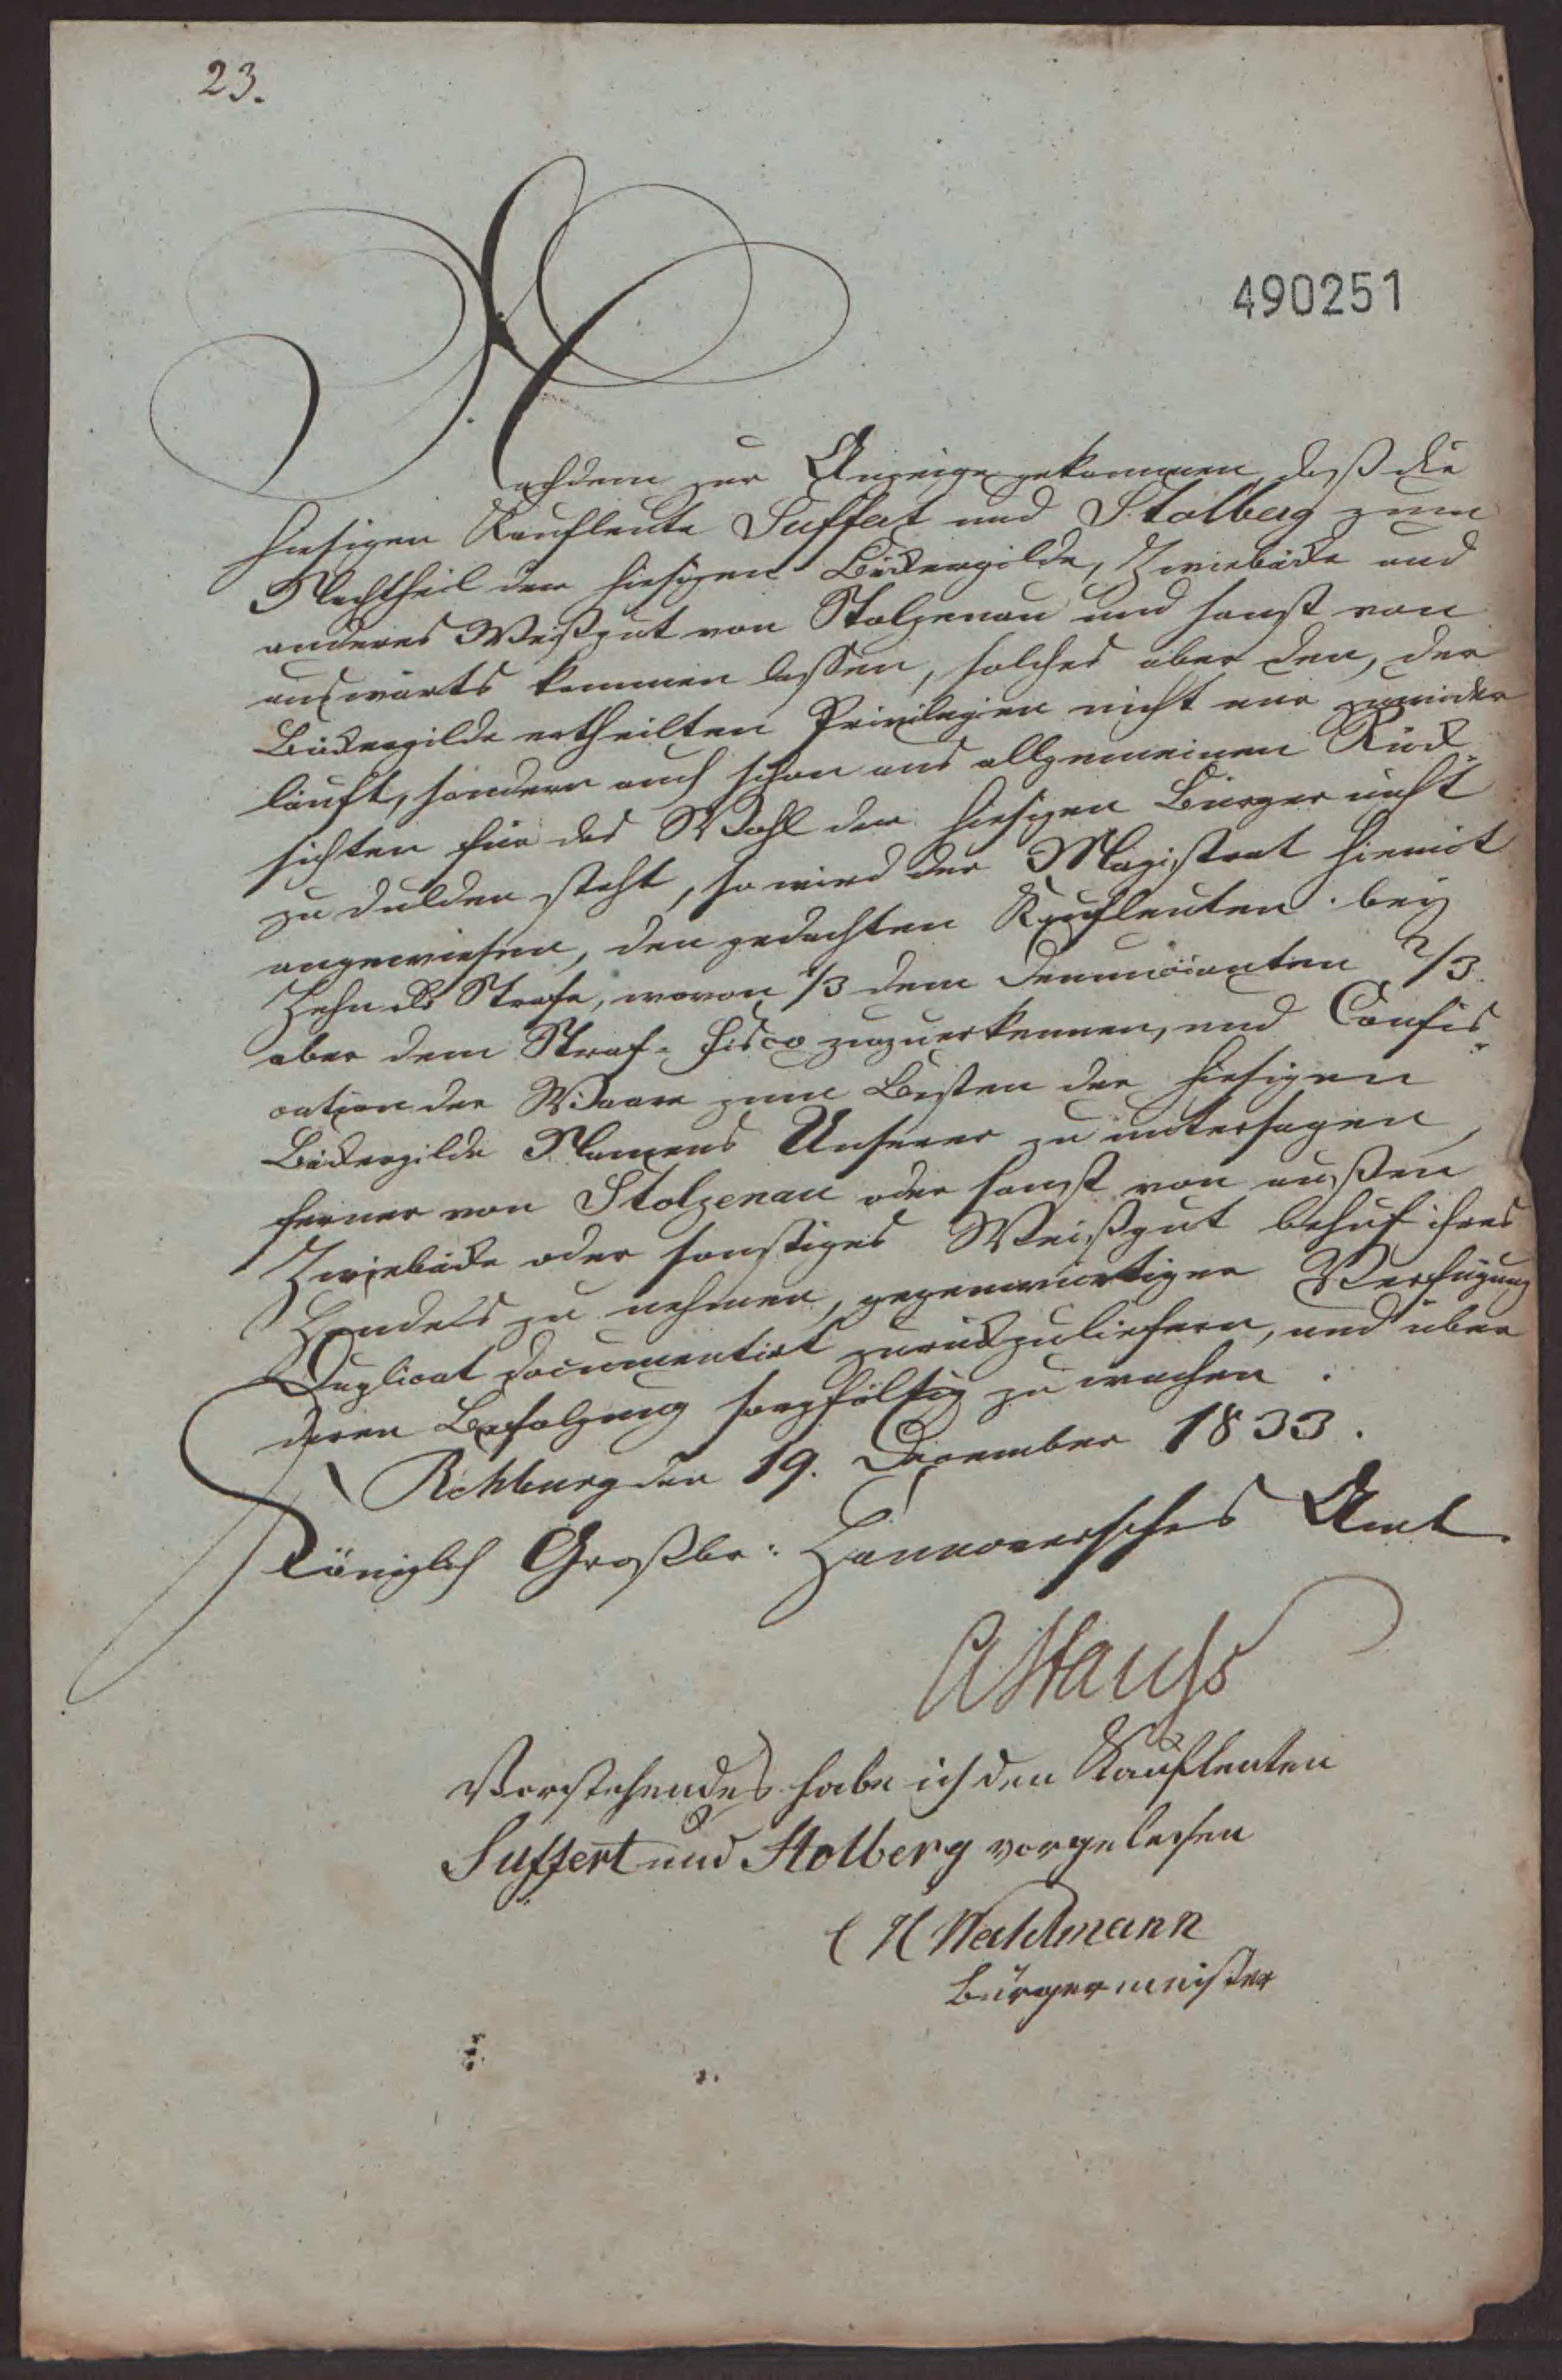 23.
490251
Nachdem zur Anzeige gekommen, daß die
hiesigen Kaufleute Suffert und Stolberg zum
Nachtheil der hiesigen Bäckergilde, Zwiebäcke und
anderes Weißgut von Stolzenau und sonst von
auswärts kommen lassen, solches aber den, der
Bäckergilde ertheilten Privilegien nicht nur zuwider
läuft, sondern auch schon aus allgemeinen Rück-
sichten für das Wohl der hiesigen Bürger nicht
zu dulden steht, so wird der Magistrat hiemit
angewiesen, den gedachten Kaufleuten bey
Zehn Strafe, wovon 1/3 dem Denuncianten 2/3
aber dem Straf-Fisco zuzuerkennen, und Confis-
cation der Waare zum Besten der hiesigen
Bäckergilde Namens Unserer zu untersagen,
ferner von Stolzenau oder sonst von außen
Zwiebäcke oder sonstiges Weißgut behuf ihres
Handels zu nehmen, gegenwärtiger Verfügung
Duplicat documentirt zurückzuliefern, und über
deren Befolgung sorgfältig zu wachen.
Rehburg den 19. December 1833.
Königlich Großbr: Hannoversches Amt
Vorstehendes habe ich den Kaufleuten
Suffert und Stolberg vorgelesen
C H Waldmann
Bürgermeister